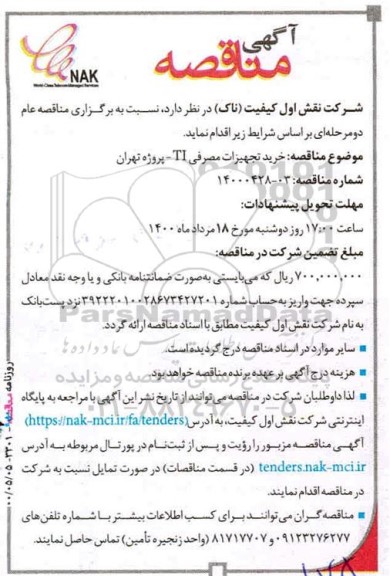 آگهی
مناقصه
NAK
World-Class Telecom Managed Services
شرکت نقش اول کیفیت (ناک) در نظر دارد، نسبت به برگزاری مناقصه عام
دومرحله‌ای بر اساس شرایط زیر اقدام نماید.
موضوع مناقصه: خرید تجهیزات مصرفی TI - پروژه تهران
شماره مناقصه: ۰۳-۱۴۰۰۰۴۲۸
مهلت تحویل پیشنهادات:
ساعت ۱۷:۰۰ روز دوشنبه مورخ ۱۸ مرداد ماه ۱۴۰۰
مبلغ تضمین شرکت در مناقصه:
۷۰۰,۰۰۰,۰۰۰ ریال که می‌بایستی به‌صورت ضمانتنامه بانکی و یا وجه نقد معادل
سپرده جهت واریز به حساب شماره ۳۹۲۲۲۰۱۰۰۲۸۶۷۳۴۲۷۲۰۱ نزد پست‌بانک
به نام شرکت نقش اول کیفیت مطابق با اسناد مناقصه ارائه گردد.
سایر موارد در اسناد مناقصه درج گردیده است.
هزینه درج آگهی بر عهده برنده مناقصه خواهد بود.
لذا داوطلبان شرکت در مناقصه می‌توانند از تاریخ نشر این آگهی با مراجعه به پایگاه
اینترنتی شرکت نقش اول کیفیت، به آدرس (https://nak-mci.ir/fa/tenders)
آگهی مناقصه مزبور را رؤیت و پس از ثبت‌نام در پورتال مربوطه به آدرس
tenders.nak-mci.ir (در قسمت مناقصات) در صورت تمایل نسبت به شرکت
در مناقصه اقدام نمایند.
مناقصه‌گران می‌توانند برای کسب اطلاعات بیشتر با شماره تلفن‌های
۰۹۱۲۳۲۷۶۲۷۷ و ۸۱۷۱۷۷۰۷ (واحد زنجیره تأمین) تماس حاصل نمایند.
روزنامه مناقصه
۰۰/۰۵/۰۵
ParsNamadData
۰۲۱-۸۸۳۴۹۶۷۰-۵